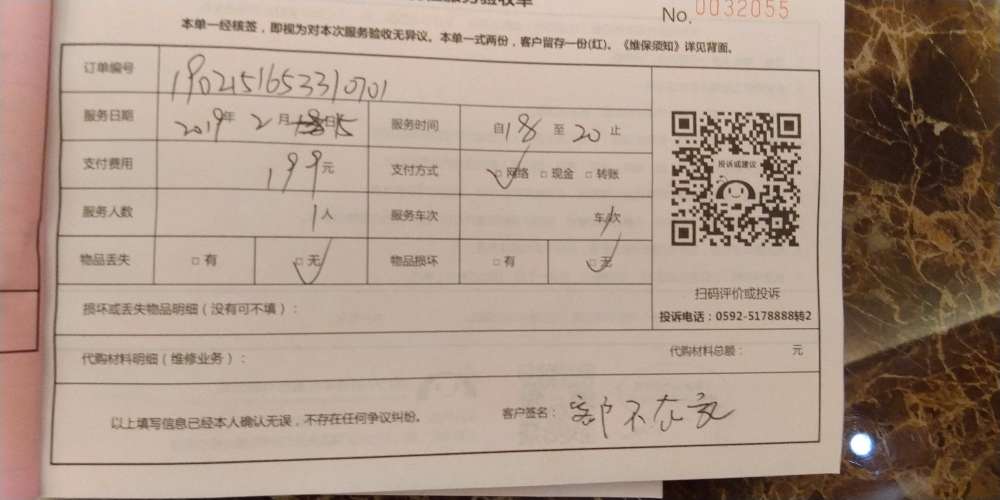 No. 0032055
本单一经核签，即视为对本次服务验收无异议。本单一式两份，客户留存一份(红)。《维保须知》详见背面。
订单编号 190215165331 0701
服务日期 2019年 2月 15日 服务时间 自18至20止
支付费用 199元 支付方式 □网络 □现金 □转账
服务人数 1人 服务车次 车/次
物品丢失 □有 □无 物品损坏 □有 □无
投诉或建议
扫码评价或投诉
投诉电话：0592-5178888转2
损坏或丢失物品明细（没有可不填）：
代购材料明细（维修业务）： 代购材料总额： 元
以上填写信息已经本人确认无误，不存在任何争议纠纷。 客户签名：客户不在家